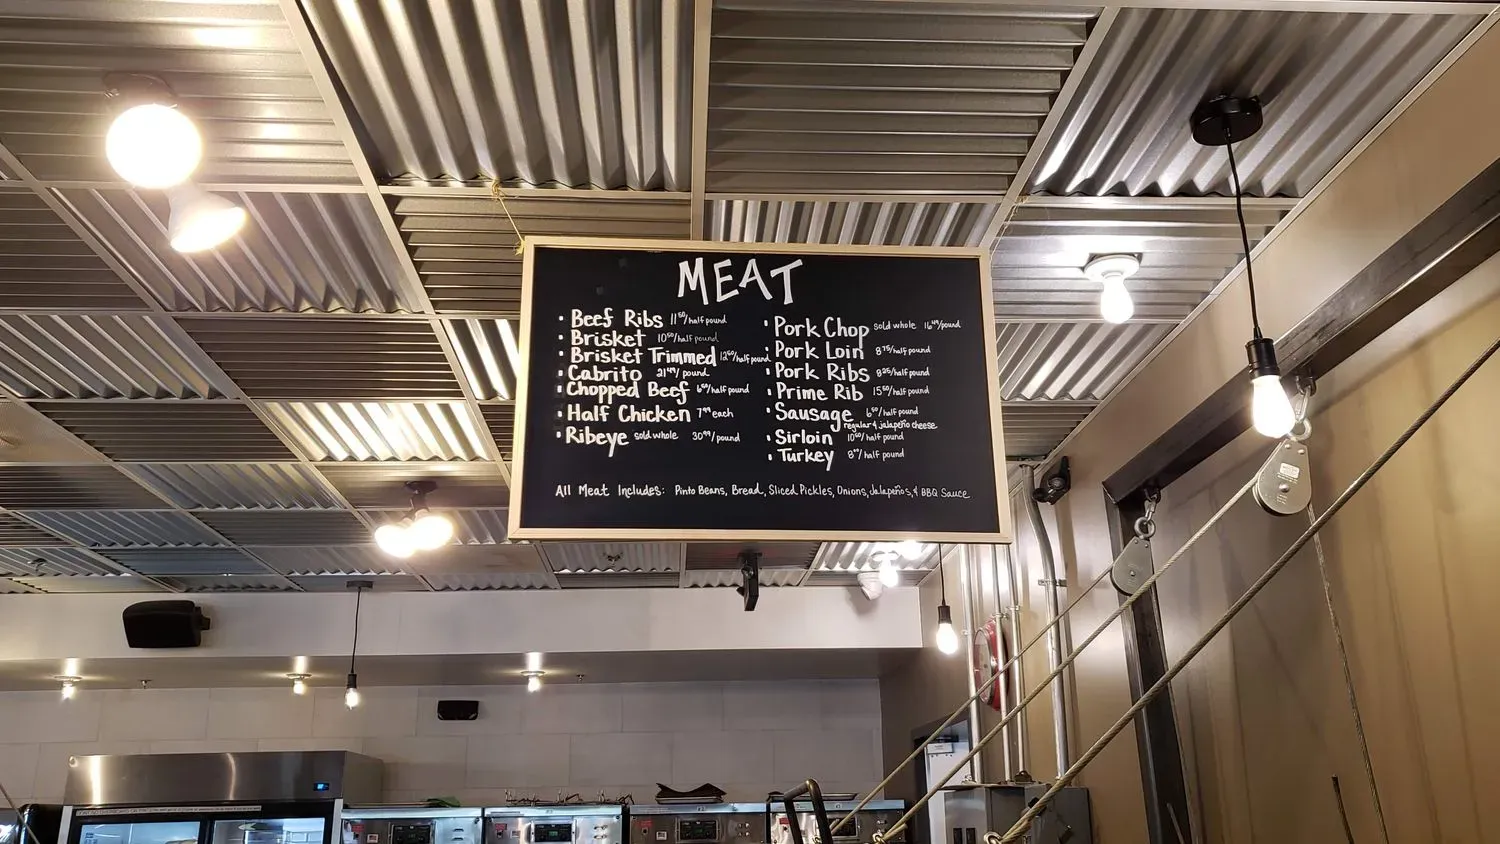 MEAT
• Beef Ribs 11⁵⁰/half pound
• Brisket 10⁵⁰/half pound
• Brisket Trimmed 12⁵⁰/half pound
• Cabrito 21⁴⁹/pound
• Chopped Beef /half pound
• Half Chicken 7⁹⁹ each
• Ribeye sold whole 30⁹⁹/pound
• Pork Chop sold whole 16⁴⁹/pound
• Pork Loin 8⁷⁵/half pound
• Pork Ribs 9²⁵/half pound
• Prime Rib 15⁵⁰/half pound
• Sausage 6⁵⁰/half pound
regular & jalapeño cheese
• Sirloin 10⁵⁰/half pound
• Turkey /half pound
All Meat Includes: Pinto Beans, Bread, Sliced Pickles, Onions, Jalapeños, & BBQ Sauce